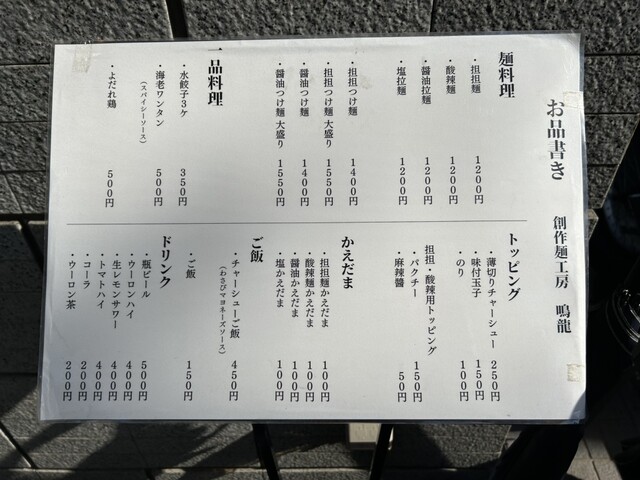 お品書き 創作麺工房 鳴龍
麺料理
・担担麺 1200円
・酸辣麺 1200円
・醤油拉麺 1200円
・塩拉麺 1200円
・担担つけ麺 1400円
・担担つけ麺 大盛り 1550円
・醤油つけ麺 1400円
・醤油つけ麺 大盛り 1550円
一品料理
・水餃子3ケ 350円
・海老ワンタン 500円
(スパイシーソース)
・よだれ鶏 500円
トッピング
・薄切りチャーシュー 250円
・味付玉子 150円
・のり 100円
担担・酸辣用トッピング
・パクチー 150円
・麻辣醤 50円
かえだま
・担担麺かえだま 100円
・酸辣麺かえだま 100円
・醤油かえだま 100円
・塩かえだま 100円
ご飯
・チャーシューご飯 450円
(わさびマヨネーズソース)
・ご飯 150円
ドリンク
・瓶ビール 500円
・ウーロンハイ 400円
・生レモンサワー 400円
・トマトハイ 400円
・コーラ 200円
・ウーロン茶 200円